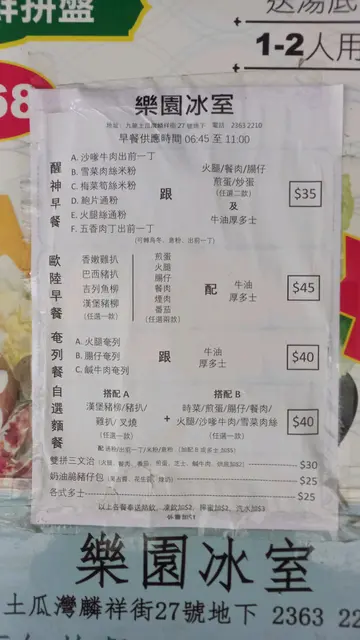 鮮拼盤
送湯底
1-2人用
68
樂園冰室
地址：九龍土瓜灣麟祥街 27 號地下 電話 2363 2210
早餐供應時間 06:45 至 11:00
醒神早餐
A. 沙嗲牛肉出前一丁
B. 雪菜肉絲米粉
C. 梅菜筍絲米粉
D. 鮑片通粉
E. 火腿絲通粉
F. 五香肉丁出前一丁
跟
火腿/餐肉/腸仔
煎蛋/炒蛋
(任選二款)
及
牛油厚多士
$35
(可轉烏冬、意粉、出前一丁)
歐陸早餐
香嫩雞扒
巴西豬扒
吉列魚柳
漢堡豬柳
(任選一款)
煎蛋
火腿
腸仔
餐肉
煙肉
番茄
(任選兩款)
配
牛油
厚多士
$45
奄列餐
A. 火腿奄列
B. 腸仔奄列
C. 鹹牛肉奄列
跟
牛油
厚多士
$40
自選麵餐
搭配 A
漢堡豬柳/豬扒/
雞扒/叉燒
(任選一款)
+
搭配 B
時菜/煎蛋/腸仔/餐肉/
火腿/沙嗲牛肉/雪菜肉絲
(任選一款)
$40
配 通粉/出前一丁/米粉/意粉
雙拼三文治
$30
奶油鬆豬仔包
$25
各式多士
$25
以上各餐奉送熱飲，凍飲加$2，檸蜜加$3，汽水加$3
樂園冰室
土瓜灣麟祥街27號地下 2363 22